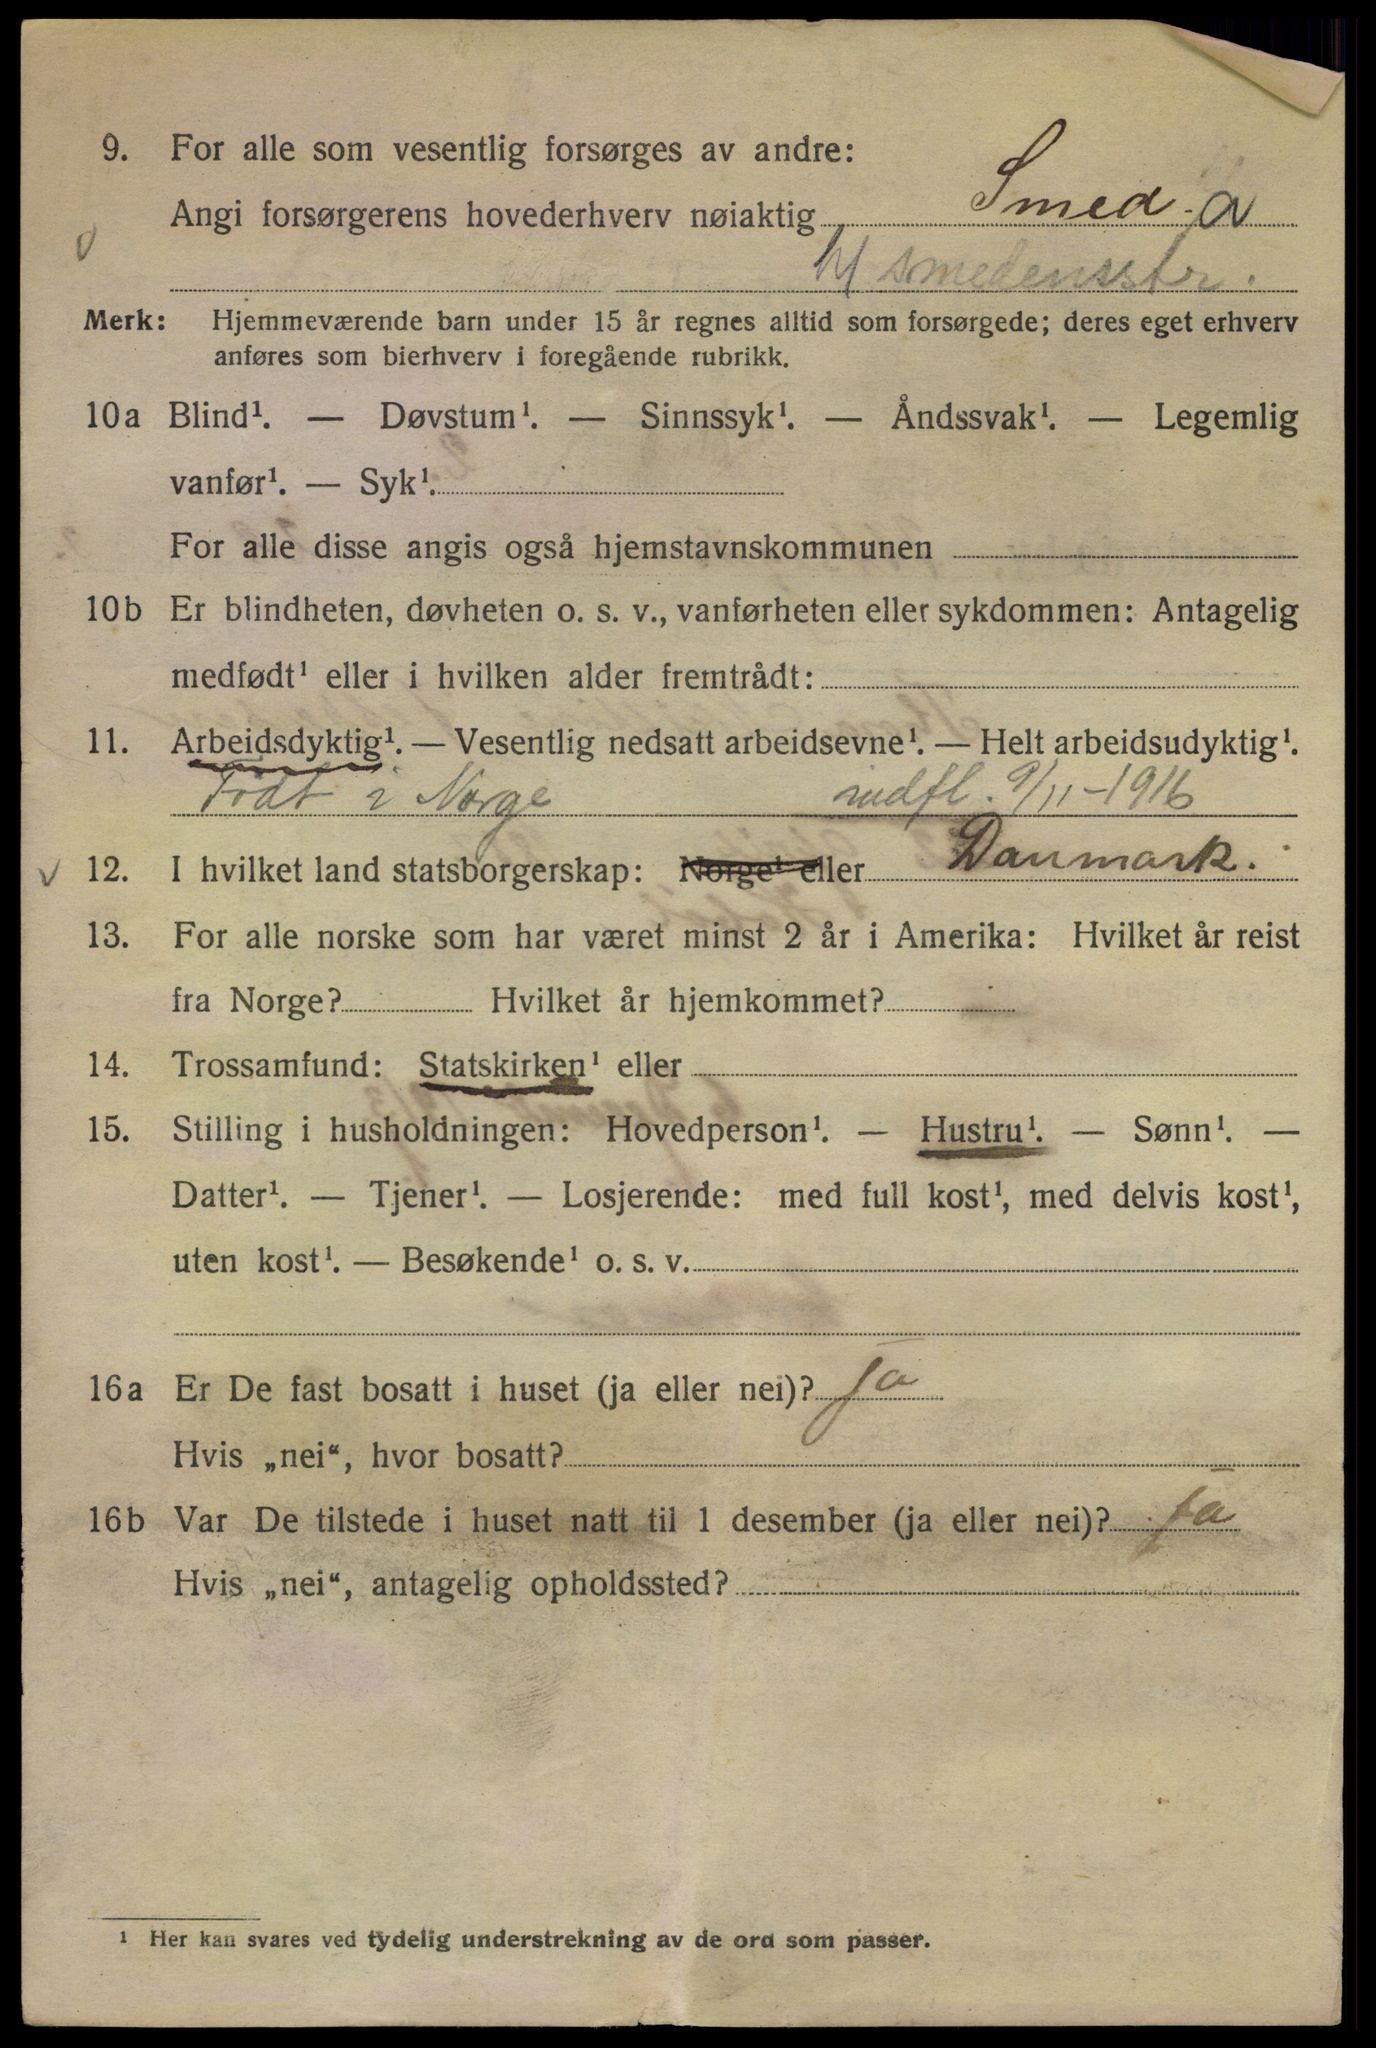 9. For alle som vesentlig forsørges av andre:
Angi forsørgerens hovederhverv nøiaktig Smed - a
smedensstr.
Merk: Hjemmeværende barn under 15 år regnes alltid som forsørgede; deres eget erhverv
anføres som bierhverv i foregående rubrikk.
10a Blind¹. — Døvstum¹. — Sinnssyk¹. — Åndssvak¹. — Legemlig
vanfør¹. — Syk¹.
For alle disse angis også hjemstavnskommunen
10b Er blindheten, døvheten o. s. v., vanførheten eller sykdommen: Antagelig
medfødt¹ eller i hvilken alder fremtrådt:
11. Arbeidsdyktig¹. — Vesentlig nedsatt arbeidsevne¹. — Helt arbeidsudyktig¹.
Født i Norge indfl. 9/11-1916
12. I hvilket land statsborgerskap: Norge¹ eller Danmark.
13. For alle norske som har været minst 2 år i Amerika: Hvilket år reist
fra Norge? Hvilket år hjemkommet?
14. Trossamfund: Statskirken¹ eller
15. Stilling i husholdningen: Hovedperson¹. — Hustru¹. — Sønn¹. —
Datter¹. — Tjener¹. — Losjerende: med full kost¹, med delvis kost¹,
uten kost¹. — Besøkende¹ o. s. v.
16a Er De fast bosatt i huset (ja eller nei)? ja
Hvis „nei“, hvor bosatt?
16b Var De tilstede i huset natt til 1 desember (ja eller nei)? ja
Hvis „nei“, antagelig opholdssted?
¹ Her kan svares ved tydelig understrekning av de ord som passer.